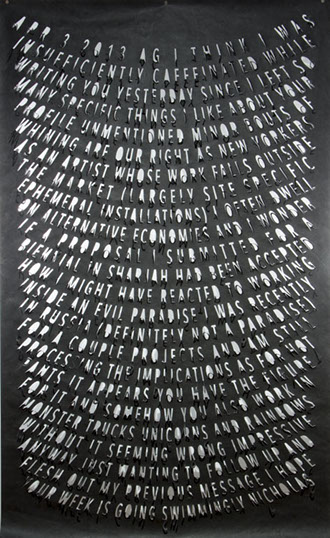 APR 3 2013 AG I THINK I WAS
INSUFFICIENTLY CAFFEINATED WHILE
WRITING YOU YESTERDAY SINCE I LEFT SO
MANY SPECIFIC THINGS I LIKE ABOUT YOUR
PROFILE UNMENTIONED MINOR BOUTS OF
WHINING ARE OUR RIGHT AS NEW YORKERS
AS AN ARTIST WHOSE WORK FALLS OUTSIDE
THE MARKET (LARGELY SITE SPECIFIC
EPHEMERAL INSTALLATIONS) I OFTEN DWELL
ON ALTERNATIVE ECONOMIES AND I WONDER
IF A PROPOSAL I SUBMITTED FOR A
BIENNIAL IN SHARJAH HAD BEEN ACCEPTED
HOW I MIGHT HAVE REACTED TO WORKING
INSIDE AN EVIL PARADISE I WAS RECENTLY
IN RUSSIA (DEFINITELY NOT A PARADISE)
FOR A COUPLE PROJECTS AND AM STILL
PROCESSING THE IMPLICATIONS AS FOR HOT
PANTS IT APPEARS YOU HAVE THE FIGURE
FOR IT AND SOMEHOW YOU ALSO WORK IN
MONSTER TRUCKS UNICORNS AND
WITHOUT IT SEEMING WRONG IMPRESSIVE
ANYWAY JUST WANTING TO FOLLOW UP AND
FLESH OUT MY PREVIOUS MESSAGE I HOPE
YOUR WEEK IS GOING SWIMMINGLY NICHOLAS